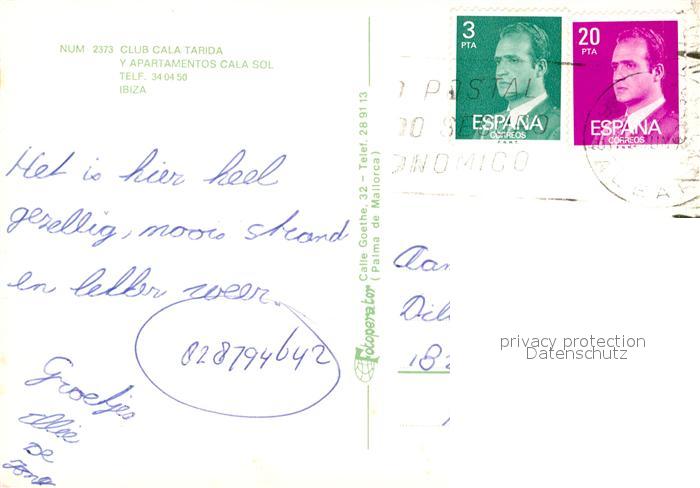 NUM 2373 CLUB CALA TARIDA
Y APARTAMENTOS CALA SOL
TELF. 34 04 50
IBIZA
Het is hier heel
gezellig, moois strand
en lekker weer.
028794642
Groetjes
De
Fotoperator Calle Goethe, 32 - Telef. 28 91 13
(Palma de Mallorca)
3
PTA
ESPAÑA
CORREOS
F.N.M.T.
20
PTA
ESPAÑA
CORREOS
F.N.M.T.
POSTAL
ONOMICO
Aan
182
privacy protection
Datenschutz